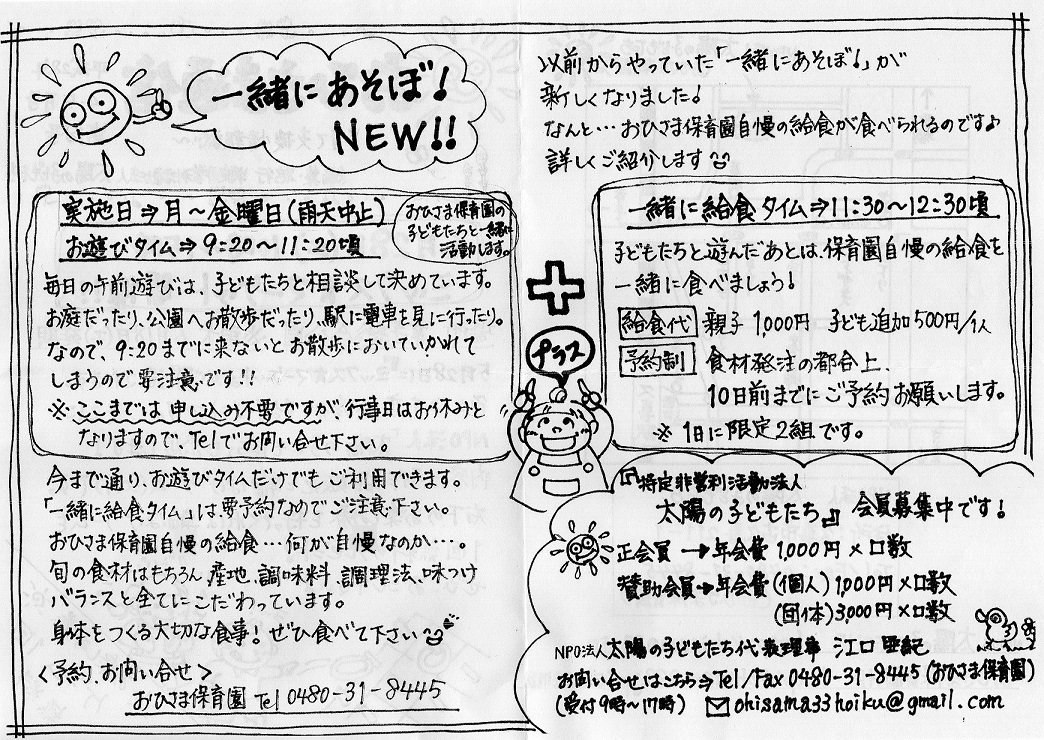 一緒にあそぼ!
NEW!!
以前からやっていた「一緒にあそぼ!」が
新しくなりました!
なんと…おひさま保育園自慢の給食が食べられるのです♪
詳しくご紹介します
実施日⇒月~金曜日(雨天中止)
お遊びタイム⇒9:20~11:20頃
おひさま保育園の
子どもたちと一緒に
活動します。
毎日の午前遊びは、子どもたちと相談して決めています。
お庭だったり、公園へお散歩だったり、駅に電車を見に行ったり。
なので、9:20までに来ないとお散歩においていかれて
しまうので要注意です!!
※ここまでは申し込み不要ですが、行事日はお休みと
なりますので、Telでお問い合せ下さい。
プラス
一緒に給食タイム⇒11:30~12:30頃
子どもたちと遊んだあとは、保育園自慢の給食を
一緒に食べましょう!
給食代 親子1,000円 子ども追加500円/1人
予約制 食材発注の都合上、
10日前までにご予約お願いします。
※1日に限定2組です。
今まで通り、お遊びタイムだけでもご利用できます。
「一緒に給食タイム」は要予約なのでご注意下さい。
おひさま保育園自慢の給食…何が自慢なのか…。
旬の食材はもちろん、産地、調味料、調理法、味つけ
バランスと全てにこだわっています。
身体をつくる大切な食事!ぜひ食べて下さい
<予約、お問い合せ>
おひさま保育園 Tel 0480-31-8445
『特定非営利活動法人
太陽の子どもたち』会員募集中です!
正会員→年会費1,000円×口数
賛助会員→年会費(個人)1,000円×口数
(団体)3,000円×口数
NPO法人太陽の子どもたち代表理事 江口亜紀
お問い合せはこちら⇒Tel/Fax 0480-31-8445(おひさま保育園)
(受付9時~17時) ohisama33hoiku@gmail.com